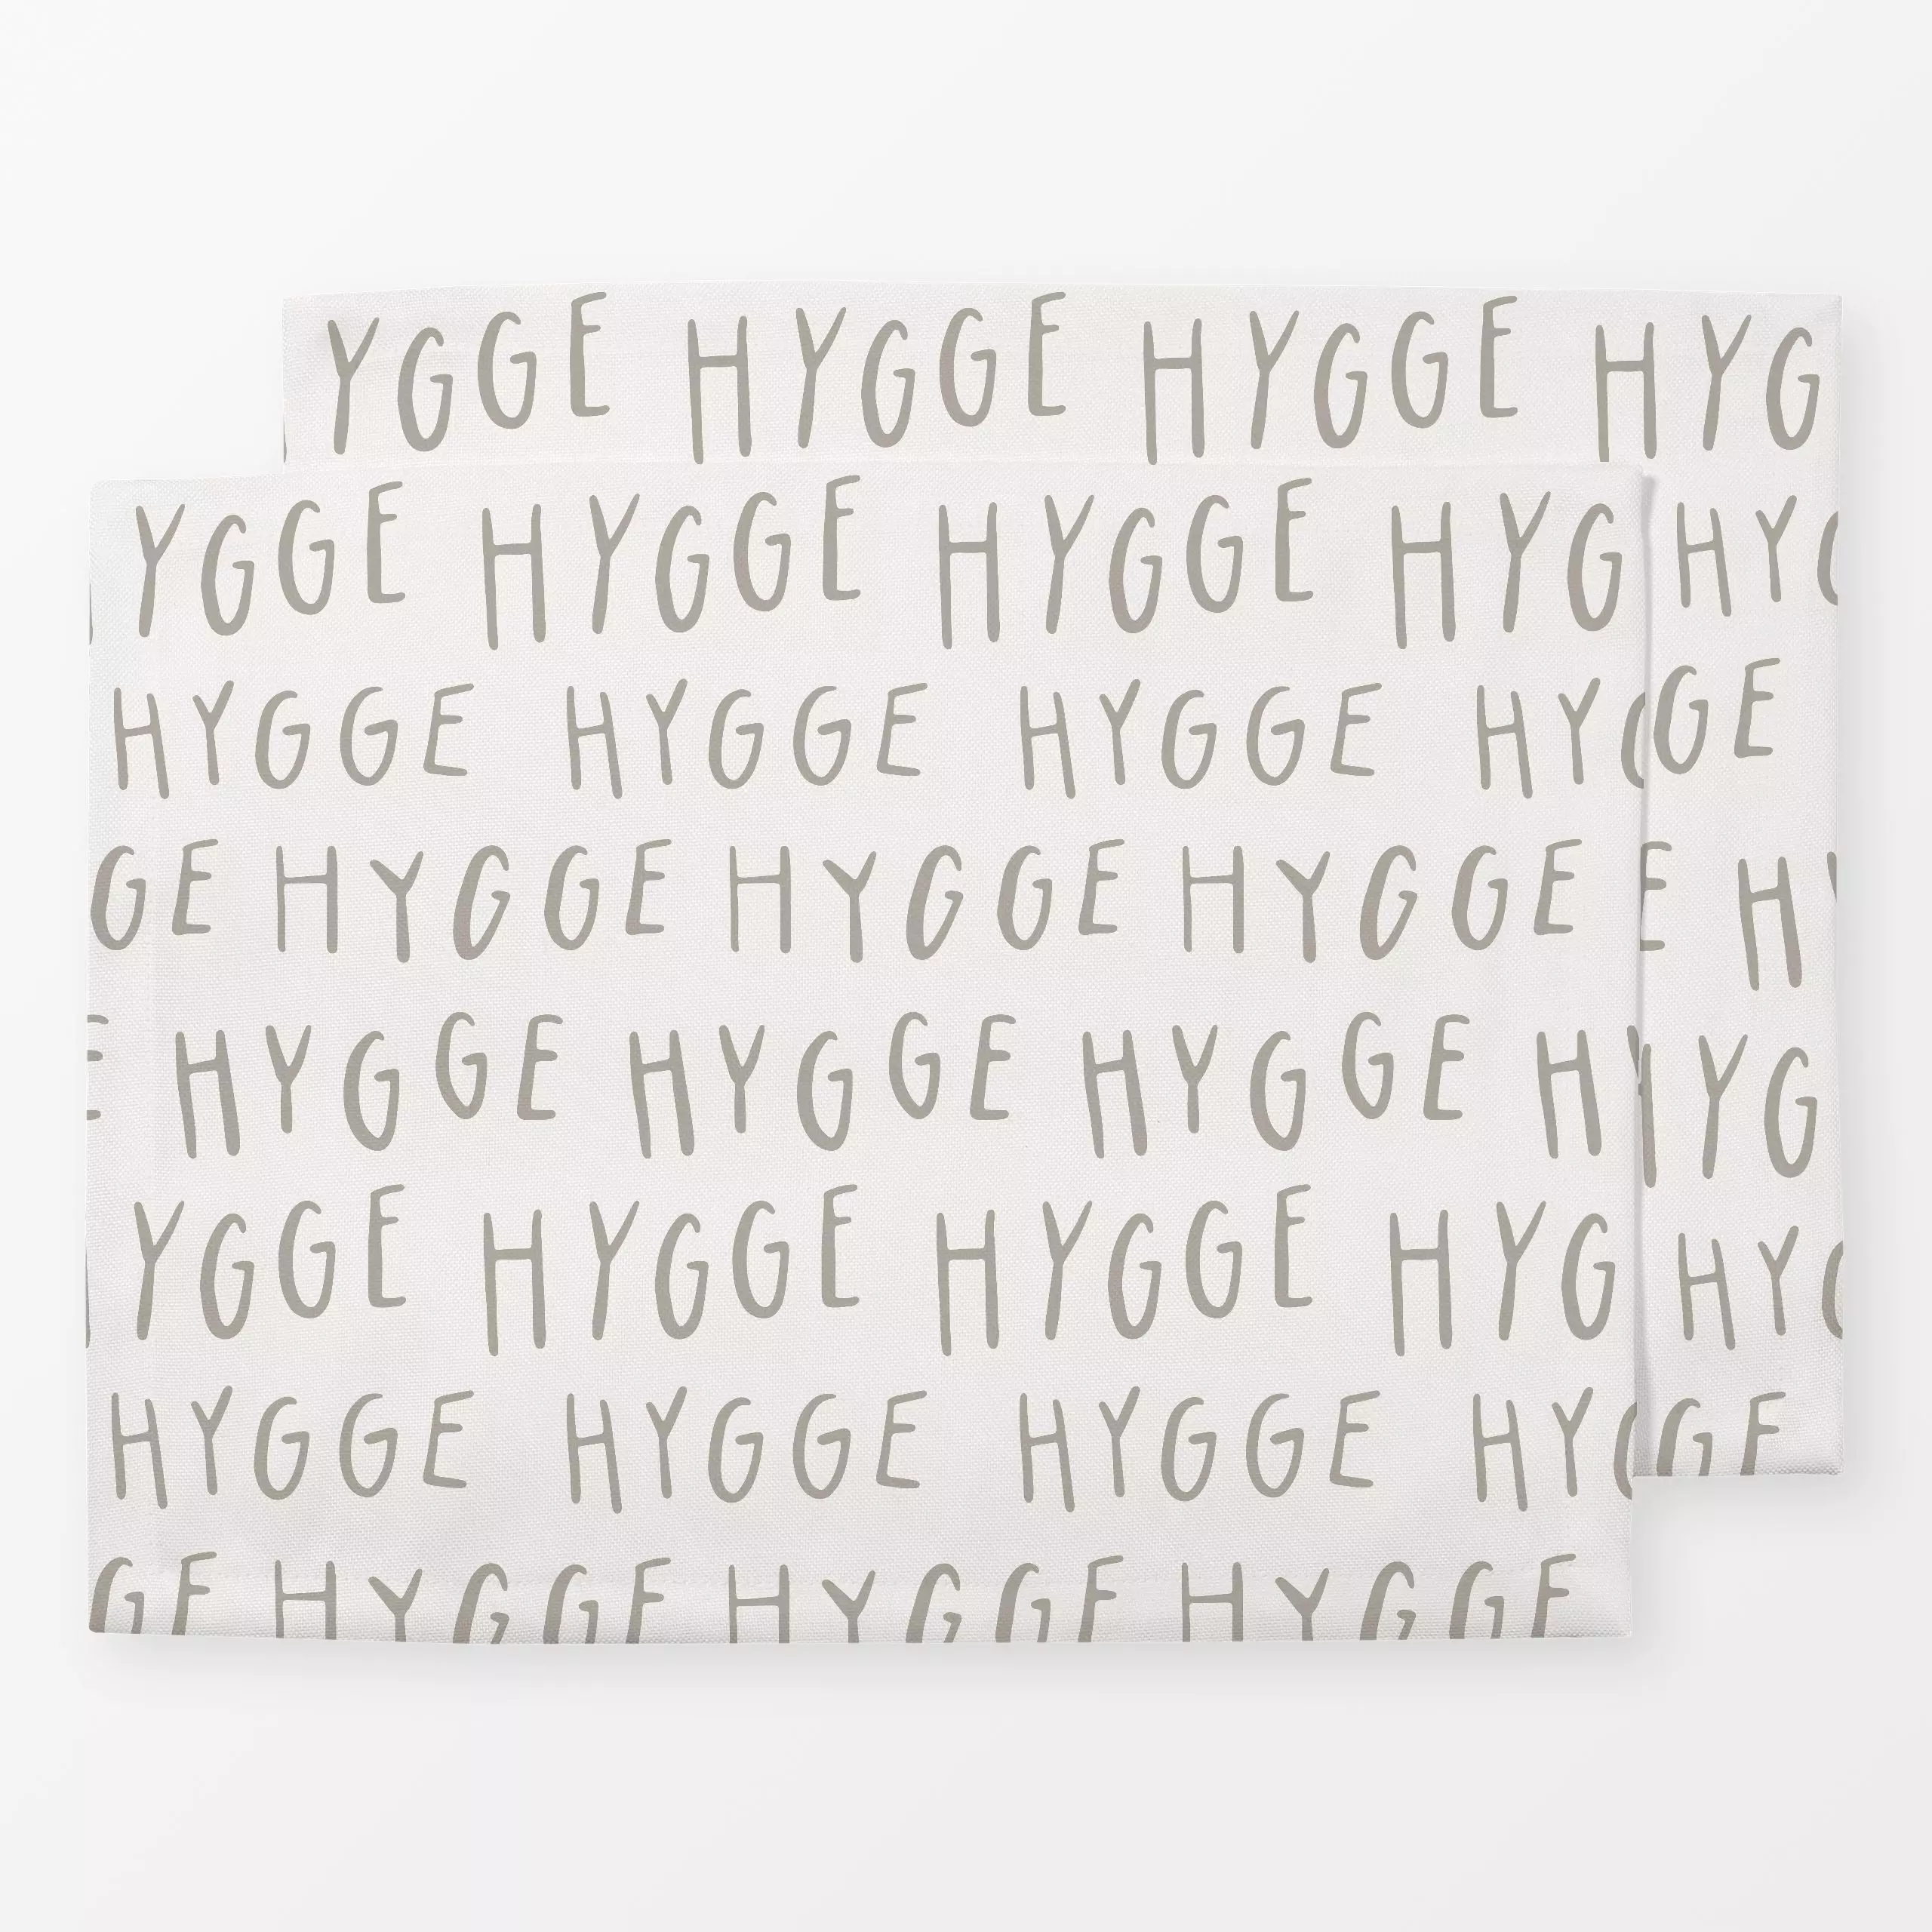 YGGE HYGGE HYGGE HYG
YGGE HYGGE HYGGE HYG
HY
HYGGE HYGGE HYGGE HY
GE
GE HYGGE HYGGE HYGGE
E H
E HYGGE HYGGE HYGGE H
HYG
YGGE HYGGE HYGGE HYG
HY
HYGGE HYGGE HYGGE HY
GE
GE HYGGE HYGGE HYGGE